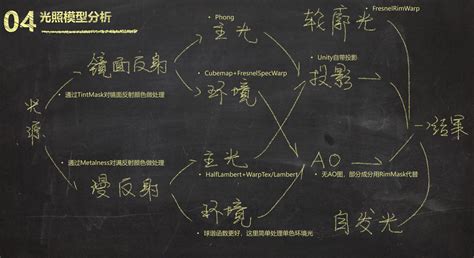 04 光照模型分析
• Phong
主光
轮廓光
• FresnelRimWarp
镜面反射
• Cubemap+FresnelSpecWarp
• Unity自带投影
投影
• 通过TintMask对镜面反射颜色做处理
环境
光源
一结果
• 通过Metalness对满反射颜色做处理
主光
AO
• HalfLambert+WarpTex/Lambert
• 无AO图，部分成分用RimMask代替
漫反射
环境
自发光
• 球谐函数更好，这里简单处理单色环境光